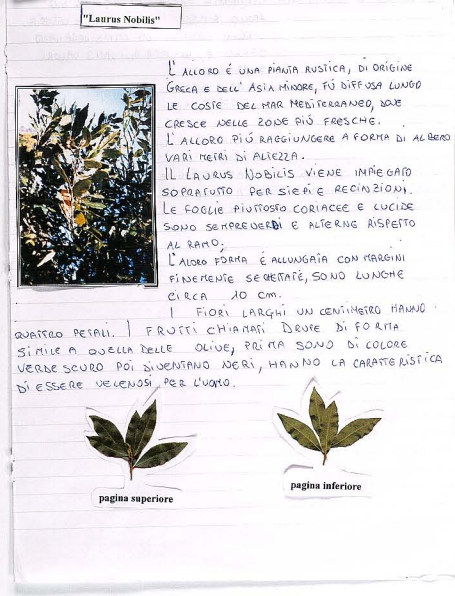 "Laurus Nobilis"
L'ALLORO É UNA PIANTA RUSTICA, DI ORIGINE
GRECA E DELL'ASIA MINORE, FÚ DIFFUSA LUNGO
LE COSTE DEL MAR MEDITERRANEO, DOVE
CRESCE NELLE ZONE PIÚ FRESCHE.
L'ALLORO PIÚ RAGGIUNGERE A FORMA DI ALBERO
VARI METRI DI ALTEZZA.
IL LAURUS NOBILIS VIENE IMPIEGATO
SOPRATUTTO PER SIEPI E RECINZIONI.
LE FOGLIE PIUTTOSTO CORIACEE E LUCIDE
SONO SEMPREVERDI E ALTERNE RISPETTO
AL RAMO;
L'ALORO FORMA É ALLUNGATA CON MARGINI
FINEMENTE SEGHETTATE, SONO LUNGHE
CIRCA 10 CM.
I FIORI LARGHI UN CENTIMETRO HANNO
QUATTRO PETALI. I FRUTTI CHIAMATI DRUPE DI FORMA
SIMILE A QUELLA DELLE OLIVE, PRIMA SONO DI COLORE
VERDE SCURO POI DIVENTANO NERI, HANNO LA CARATTERISTICA
DI ESSERE VELENOSI PER L'UOMO.
pagina superiore
pagina inferiore